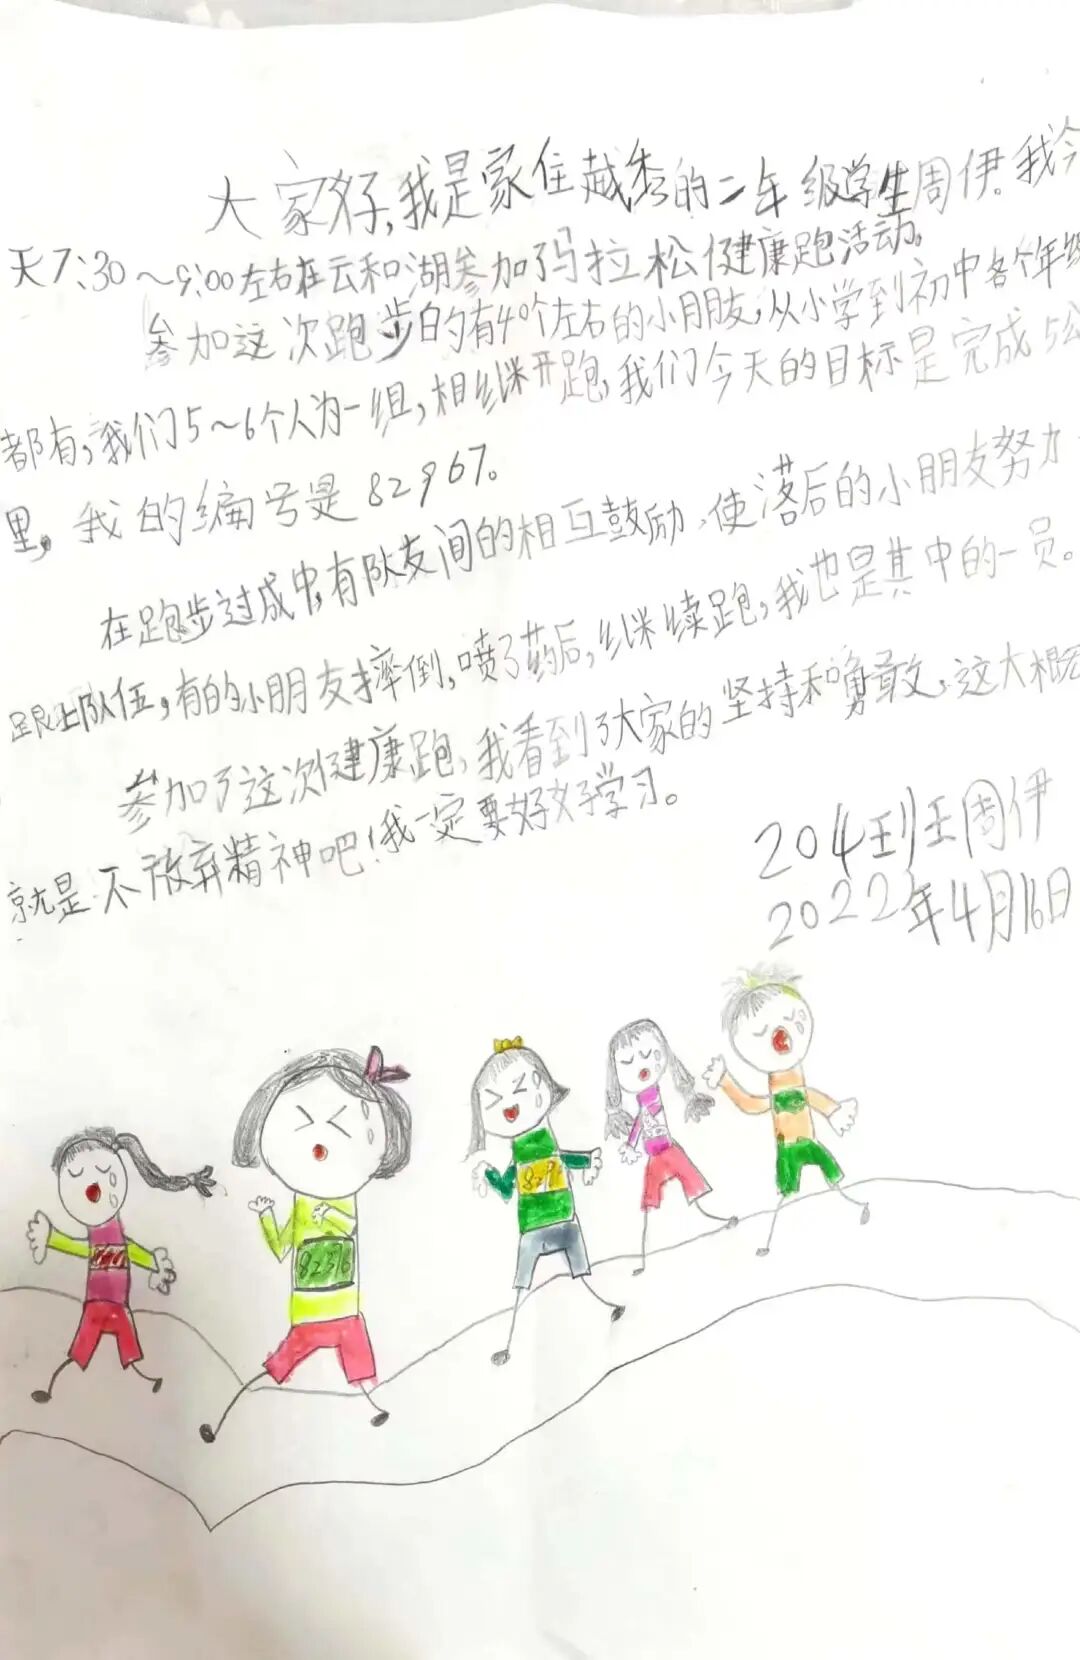 大家好,我是家住越秀的二年级学生周伊。我今
天7:30～9:00左右在云和湖参加玛拉松健康跑活动。
参加这次跑步的有40个左右的小朋友,从小学到初中各个年级
都有,我们5～6个人为一组,相继开跑,我们今天的目标是完成5公
里,我的编号是82967。
在跑步过成中,有队友间的相互鼓励,使落后的小朋友努力
跟上队伍,有的小朋友摔倒,喷了药后,继续跑,我也是其中的一员。
参加了这次健康跑,我看到了大家的坚持和勇敢,这大概
就是不放弃精神吧!我一定要好好学习。
204班王周伊
2022年4月16日
8276